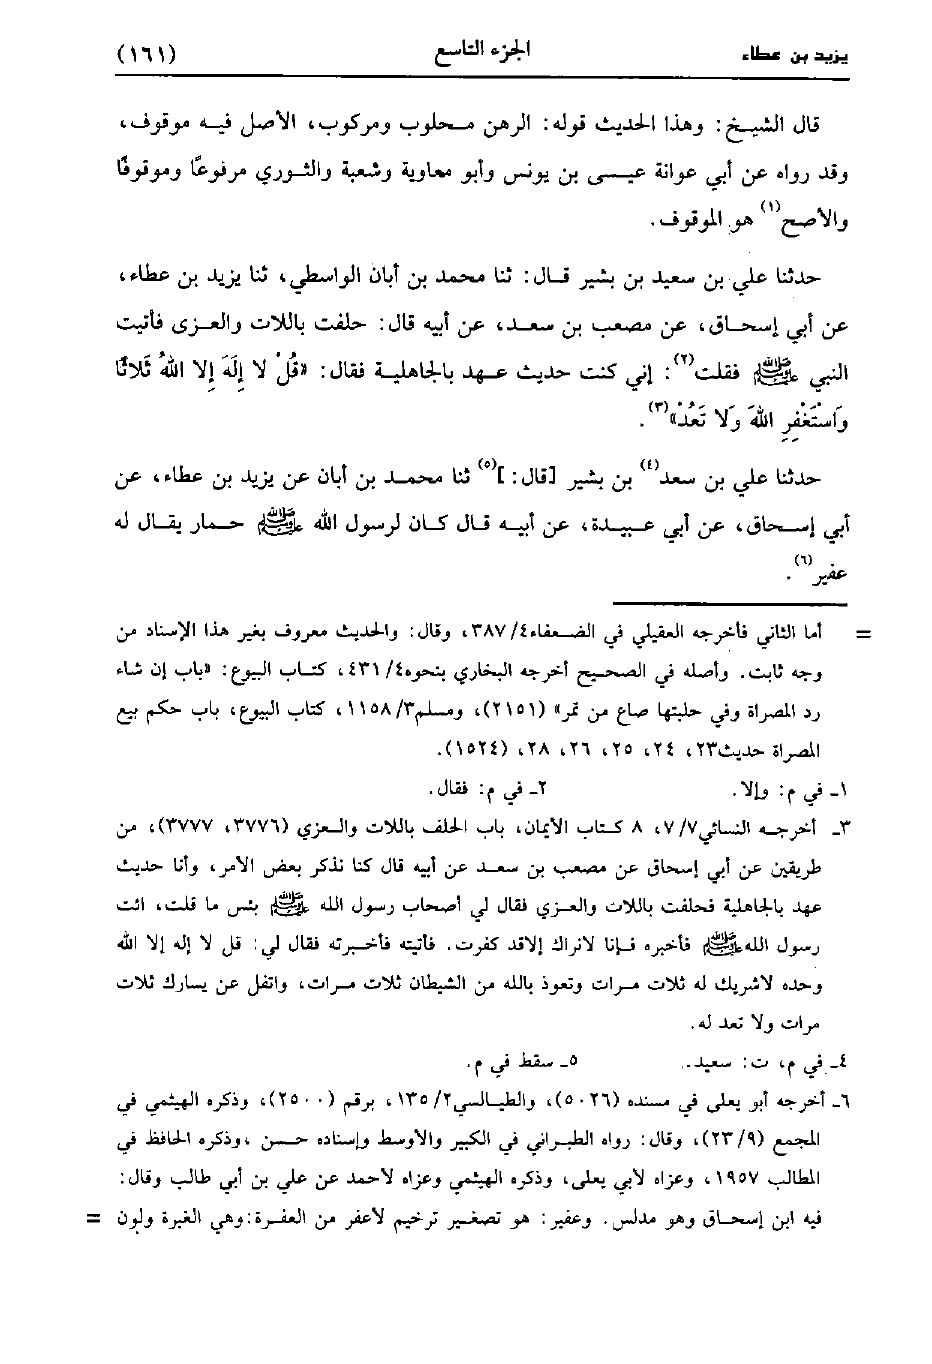 يزيد بن عطاء الجزء التاسع (١٦١)
قال الشيخ: وهذا الحديث قوله: الرهن محلوب ومركوب، الأصل فيه موقوف،
وقد رواه عن أبي عوانة عيسى بن يونس وأبو معاوية وشعبة والثوري مرفوعًا وموقوفًا
والأصح(١) هو الموقوف.
حدثنا علي بن سعيد بن بشير قال: ثنا محمد بن أبان الواسطي، ثنا يزيد بن عطاء،
عن أبي إسحاق، عن مصعب بن سعد، عن أبيه قال: حلفت باللات والعزى فأتيت
النبي ﷺ فقلت(٢): إني كنت حديث عهد بالجاهلية فقال: «قُلْ لا إِلَهَ إِلا اللهُ ثَلاثًا
وَاسْتَغْفِرِ اللهَ وَلا تَعُدْ»(٣).
حدثنا علي بن سعد(٤) بن بشير [قال:](٥) ثنا محمد بن أبان عن يزيد بن عطاء، عن
أبي إسحاق، عن أبي عبيدة، عن أبيه قال كان لرسول الله ﷺ حمار يقال له
عفير(٦).
= أما الثاني فأخرجه العقيلي في الضعفاء٤/ ٣٨٧، وقال: والحديث معروف بغير هذا الإسناد من
وجه ثابت. وأصله في الصحيح أخرجه البخاري بنحوه٤/ ٤٣١، كتاب البيوع: «باب إن شاء
رد المصراة وفي حلبتها صاع من تمر» (٢١٥١)، ومسلم٣/ ١١٥٨، كتاب البيوع، باب حكم بيع
المصراة حديث٢٣، ٢٤، ٢٥، ٢٦، ٢٨، (١٥٢٤).
١ـ في م: وإلا. ٢ـ في م: فقال.
٣ـ أخرجه النسائي٧/ ٧، ٨ كتاب الأيمان، باب الحلف باللات والعزي (٣٧٧٦، ٣٧٧٧)، من
طريقين عن أبي إسحاق عن مصعب بن سعد عن أبيه قال كنا نذكر بعض الأمر، وأنا حديث
عهد بالجاهلية فحلفت باللات والعزي فقال لي أصحاب رسول الله ﷺ بئس ما قلت، ائت
رسول الله ﷺ فأخبره فإنا لانراك إلاقد كفرت. فأتيته فأخبرته فقال لي: قل لا إله إلا الله
وحده لاشريك له ثلاث مرات وتعوذ بالله من الشيطان ثلاث مرات، واتفل عن يسارك ثلاث
مرات ولا تعد له.
٤ـ في م، ت: سعيد. ٥ـ سقط في م.
٦ـ أخرجه أبو يعلى في مسنده (٥٠٢٦)، والطيالسي٢/ ١٣٥، برقم (٢٥٠٠)، وذكره الهيثمي في
المجمع (٢٣/٩)، وقال: رواه الطبراني في الكبير والأوسط وإسناده حسن ،وذكره الحافظ في
المطالب ١٩٥٧، وعزاه لأبي يعلى، وذكره الهيثمي وعزاه لأحمد عن علي بن أبي طالب وقال:
فيه ابن إسحاق وهو مدلس. وعفير: هو تصغير ترخيم لأعفر من العفرة:وهي الغبرة ولون =